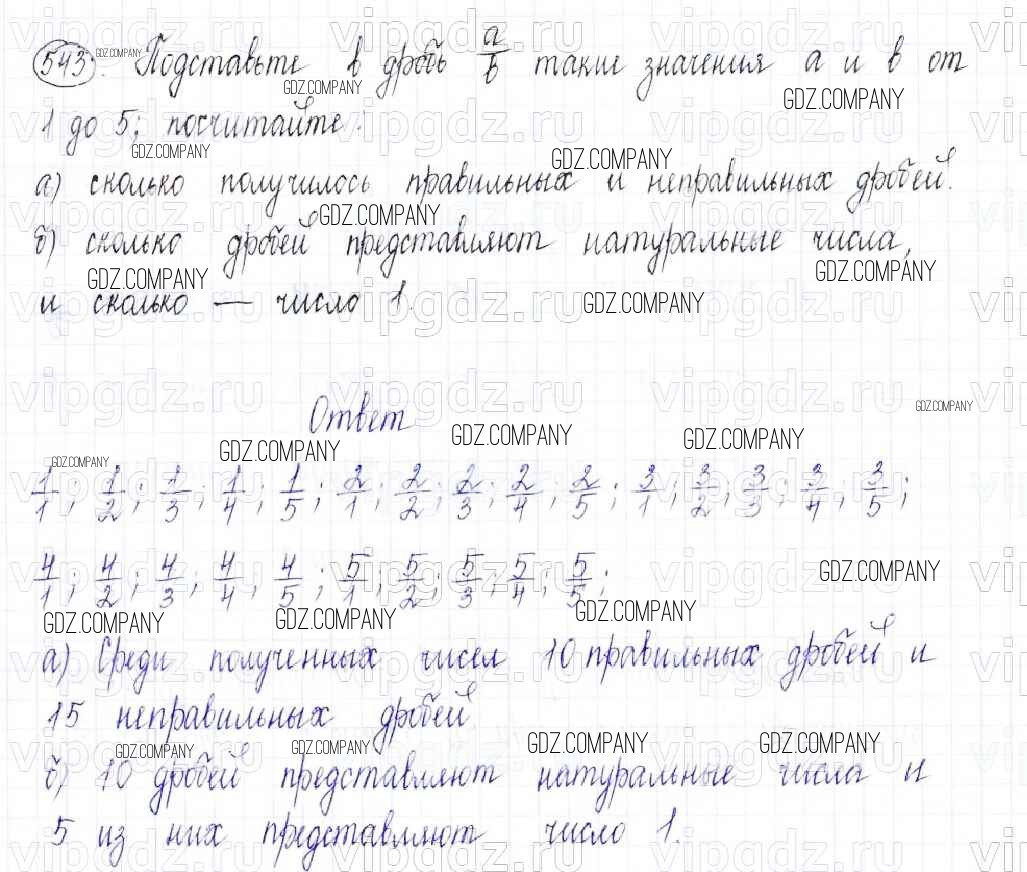 543. Подставьте в дробь a/b такие значения a и b от
1 до 5; посчитайте:
а) сколько получилось правильных и неправильных дробей.
б) сколько дробей представляют натуральные числа,
и сколько — число 1.
Ответ
1/1; 1/2; 1/3; 1/4; 1/5; 2/1; 2/2; 2/3; 2/4; 2/5; 3/1; 3/2; 3/3; 3/4; 3/5;
4/1; 4/2; 4/3; 4/4, 4/5; 5/1; 5/2; 5/3; 5/4; 5/5;
а) Среди полученных чисел 10 правильных дробей и
15 неправильных дробей
б) 10 дробей представляют натуральные числа и
5 из них представляют число 1.
GDZ.COMPANY
vipgdz.ru